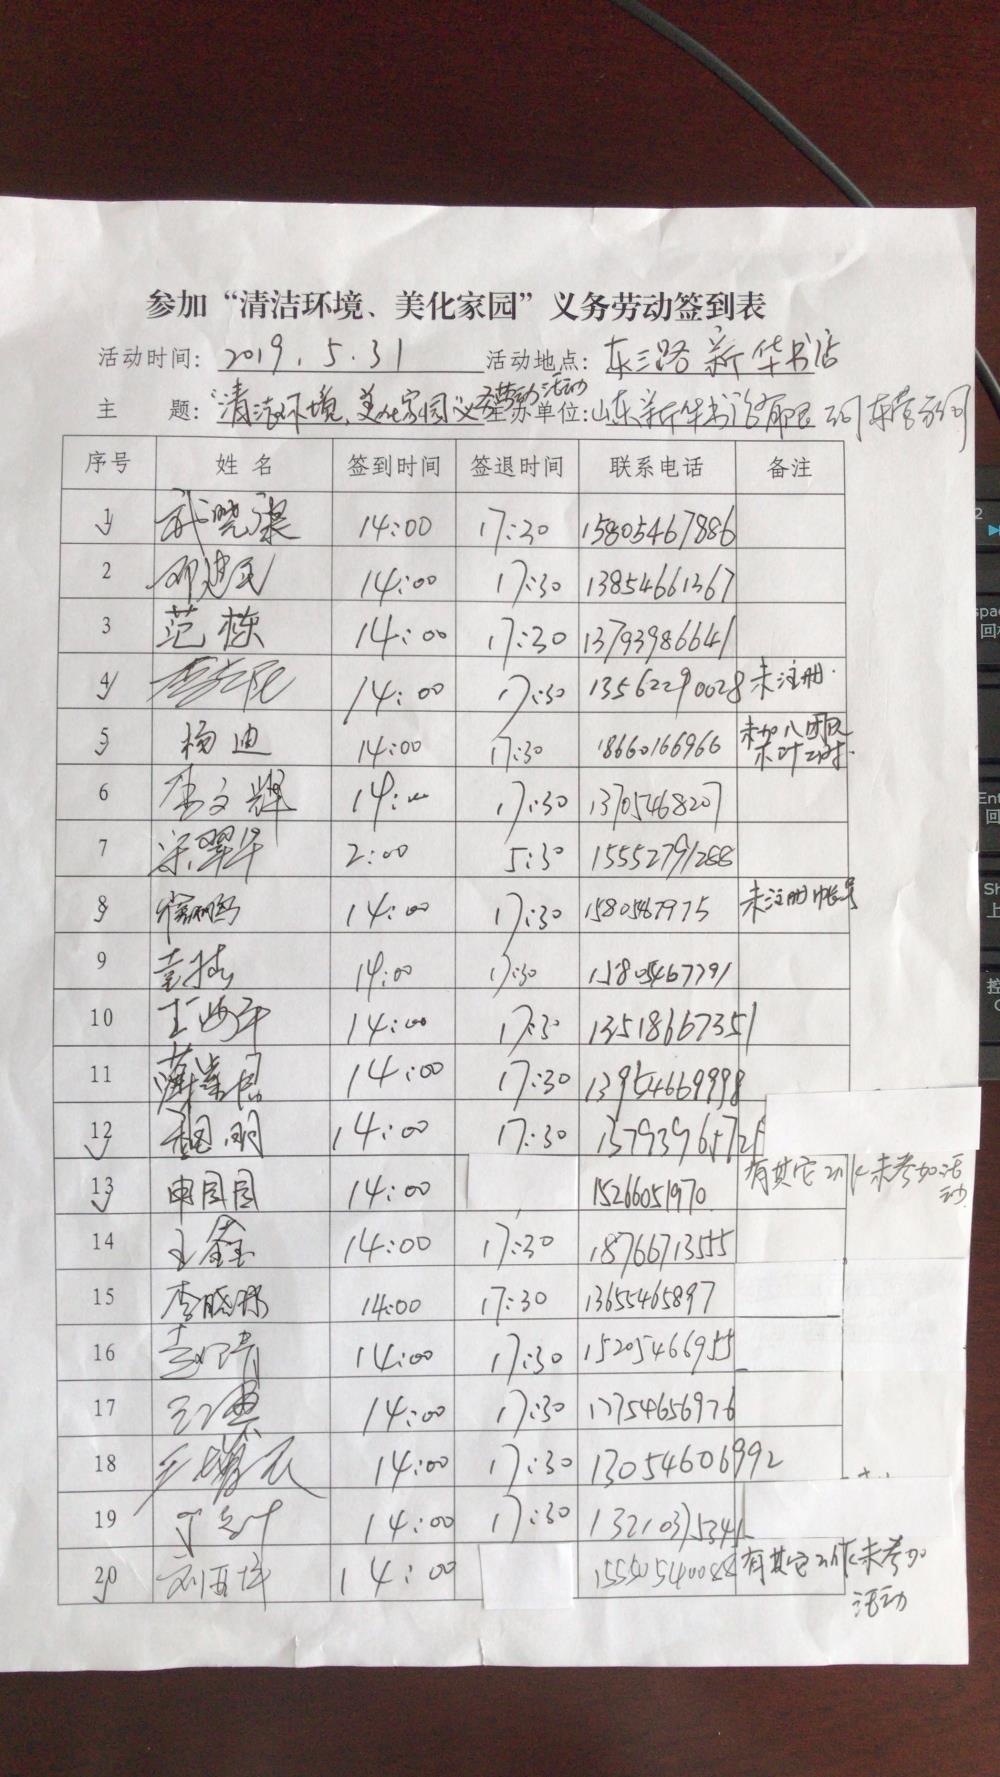 参加“清洁环境、美化家园”义务劳动签到表
活动时间: 2019.5.31 活动地点: 东三路新华书店
主 题: “清洁环境、美化家园”义务劳动活动 主办单位: 山东新华书店有限公司东营分公司
序号 姓名 签到时间 签退时间 联系电话 备注
1 武晓 14:00 17:30 15805467886
2 邓建民 14:00 17:30 13854661367
3 范栋 14:00 17:30 13793986641
4 14:00 17:30 13562290028 未注册.
5 杨迪 14:00 17:30 18660166966 未加入团队
6 李文辉 14:00 17:30 13705468207
7 梁翠华 2:00 5:30 15552791288
8 14:00 17:30 15805467975 未注册帐号
9 14:00 17:30 15805467791
10 王海平 14:00 17:30 13518667351
11 14:00 17:30 13954669998
12 魏明 14:00 17:30
13 申园园 14:00 15266051970 有其它工作未参加活动
14 王鑫 14:00 17:30 18766713555
15 李晓 14:00 17:30 13655465897
16 14:00 17:30 15205466955
17 14:00 17:30 17754656976
18 14:00 17:30 13054606992
19 14:00 17:30
20 14:00 有其它工作未参加
活动